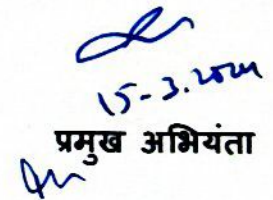 15-3.2024
प्रमुख अभियंता